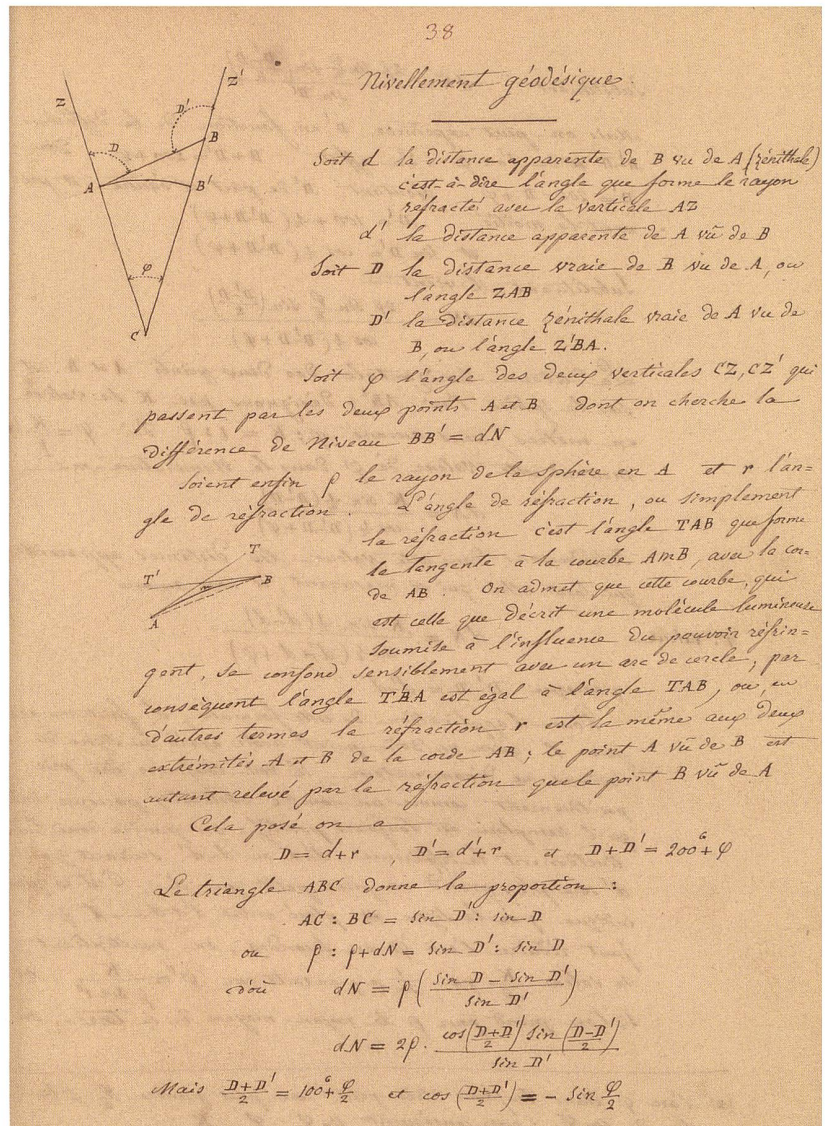 38
Nivellement géodésique
Z
Z'
D
D'
B
A
B'
φ
C
Soit d la distance apparente de B vu de A (zénithale)
c'est-à-dire l'angle que forme le rayon
réfracté avec la verticale AZ
d' la distance apparente de A vû de B
Soit D la distance vraie de B vu de A, ou
l'angle ZAB
D' la distance zénithale vraie de A vu de
B, ou l'angle Z'BA.
Soit φ l'angle des deux verticales CZ, CZ' qui
passent par les deux points A et B dont on cherche la
différence de Niveau BB' = dN
Soient enfin ρ le rayon de la sphère en A et r l'an=
gle de réfraction. L'angle de réfraction, ou simplement
la réfraction c'est l'angle TAB que forme
la tangente à la courbe AmB, avec la cor=
de AB. On admet que cette courbe, qui
est celle que décrit une molécule lumineuse
soumise à l'influence du pouvoir réfrin=
T
T'
B
m
A
gent, se confond sensiblement avec un arc de cercle; par
conséquent l'angle T'BA est égal à l'angle TAB, ou, en
d'autres termes la réfraction r est la même aux deux
extrémités A et B de la corde AB; le point A vû de B est
autant relevé par la réfraction que le point B vû de A
Cela posé on a
D = d+r , D' = d'+r et D+D' = 200ᴳ+φ
Le triangle ABC donne la proportion :
AC : BC = sin D' : sin D
ou ρ : ρ+dN = sin D' : sin D
d'où dN = ρ ( (sin D - sin D') / sin D' )
dN = 2ρ . cos((D+D')/2) sin((D-D')/2) / sin D'
Mais (D+D')/2 = 100ᴳ+ φ/2 et cos ((D+D')/2) = - sin φ/2